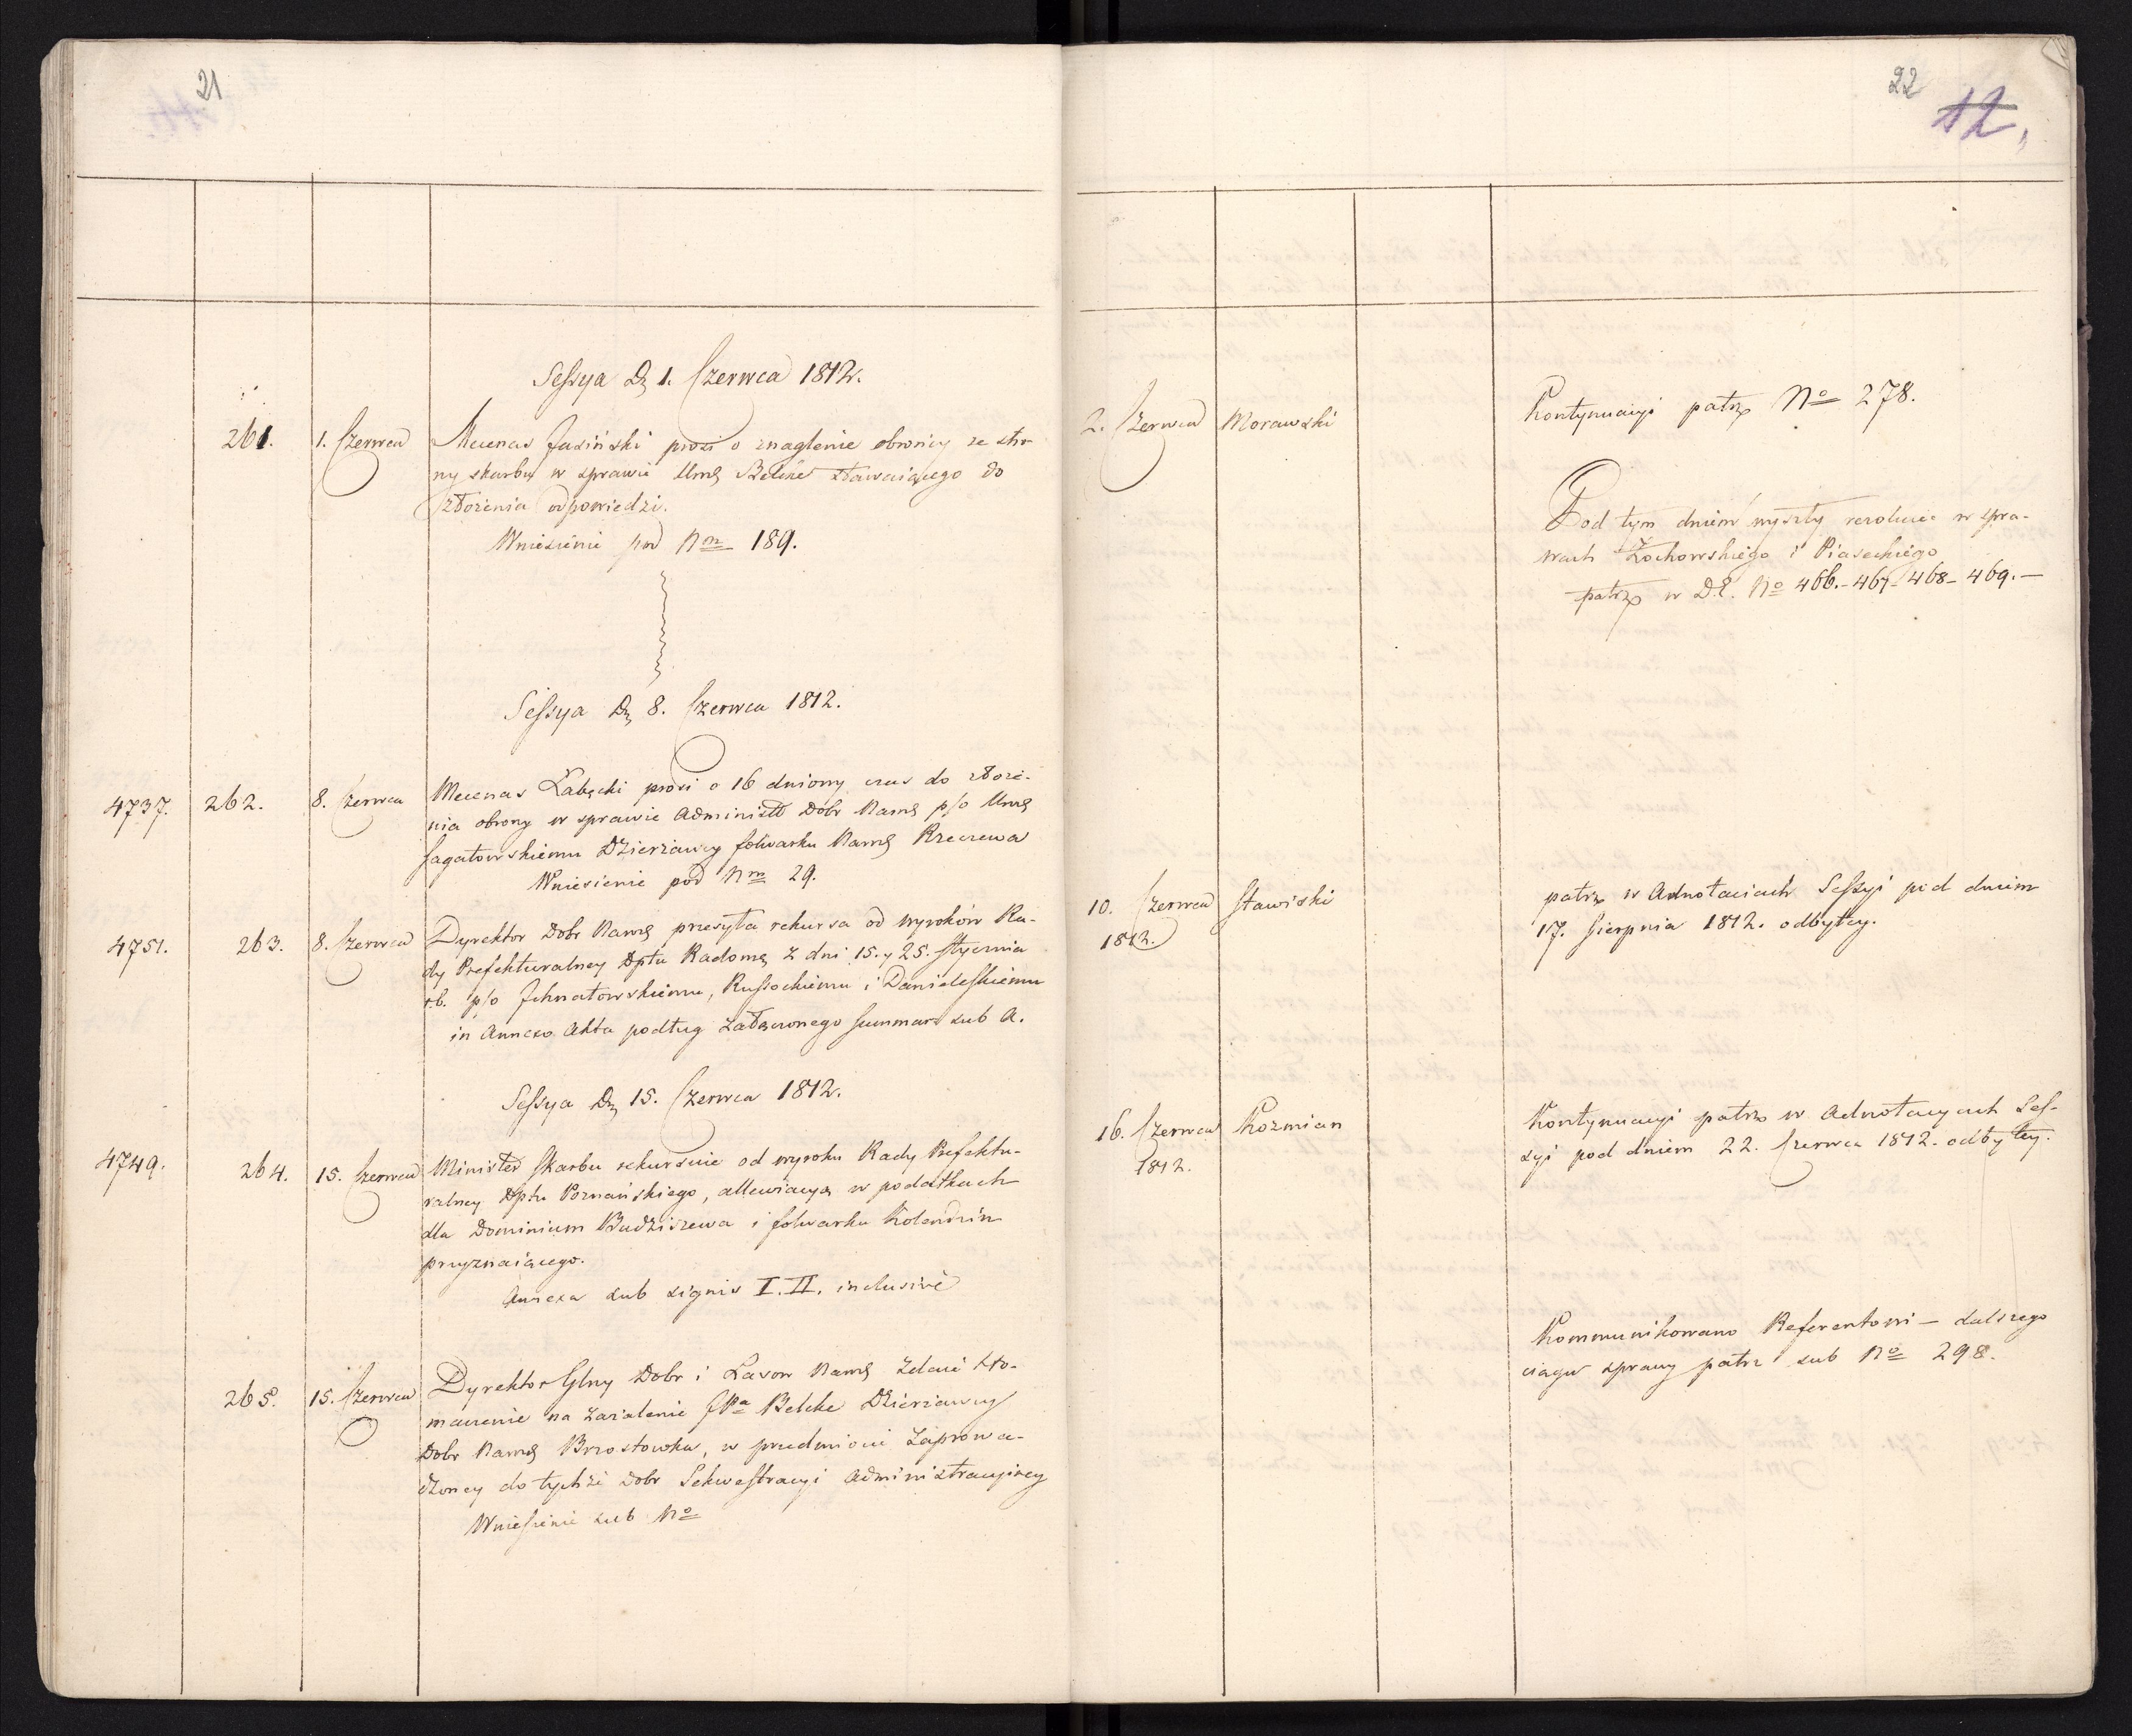 21
Sessya D. 1. Czerwca 1812.
261. 1. Czerwca Mecenas Jasiński prosi o znaglenie obrońcy ze stro-
ny skarbu w sprawie Ur. Belke stawaiącego do
złożenia odpowiedzi.
Wniesienie pod Nm 189.
Sessya D. 8. Czerwca 1812.
4737. 262. 8. Czerwca Mecenas Łabęcki prosi o 16 dniowy czas do złoże-
nia obrony w sprawie Administ Dóbr Nar. p/o
Jagatowskiemu Dzierżawcy folwarku Nar. Rzeczewa
Wniesienie pod Nm 29.
4751. 263. 8. Czerwca Dyrektor Dobr Nar. przesyła rekursa od wyroków Ra-
dy Prefekturalney Dptu Radoms. z dni 15. y 25. Stycznia
r.b. p/o Jchnatowskiemu, Russockiemu i Danieleskiemu
in Annexo Akta podług załączonego summar sub A.
Sessya D. 15. Czerwca 1812.
4749. 264. 15. Czerwca Minister Skarbu rekursuie od wyroku Rady Prefektu-
ralney Dptu Poznańskiego, allewiacyą w podatkach
dla Dominium Budziszewa i folwarku Kolendzin
przyznaiącego.
Annexa sub signis I. II. inclusive
265. 15. Czerwca Dyrektor Glny Dobr i Lasow Nar. zdaie tło-
maczenie na zażalenie JPa Belcke Dzierżawcy
Dobr Nar. Brzostowka, w przedmiocie zaprowa-
dzoney do tychże Dobr Sekwestracyi Administracyiney
Wniesienie sub No
22
12,
2. Czerwca Morawski Kontynuacyi patrz No 278.
Pod tym dniem wyszły rezolucie w spra-
wach Żochowskiego i Piaseckiego
patrz w D.E. No 466.-467-468-469.-
10. Czerwca Stawiski patrz w Adnotaciach Sessyi pod dniem
1812. 17. Sierpnia 1812. odbytey.
16. Czerwca Kozmian Kontynuacyi patrz w Adnotacyach Ses-
1812. syi pod dniem 22. Czerwca 1812. odbytey.
Kommunikowano Referentowi - dalszego
ciągu sprawy patrz sub No 298.